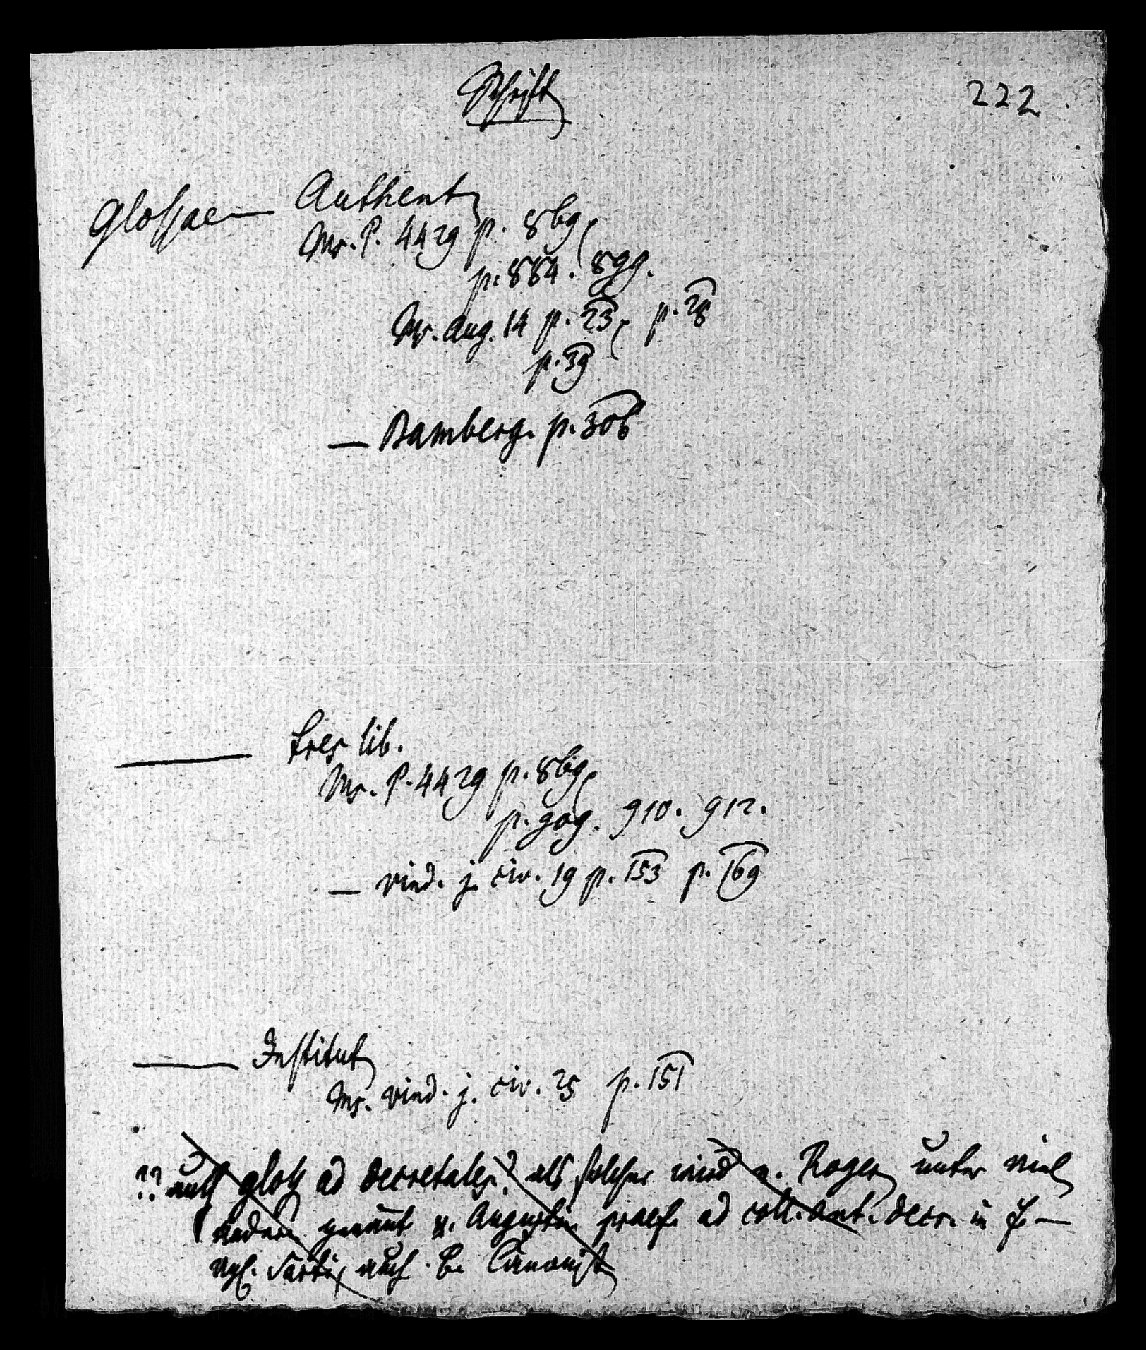 Schrift
222
Glossae — Authent.
Ms. P. 4429 p. 869,
p. 884. 899.
Ms. Aug. 14 p. 23, p. 28
p. 39
— Bamberg. p. 306
——— tres lib.
Ms. P. 4429 p. 869,
p. 909. 910. 912.
— vind. j. civ. 19 p. 153 p. 169
——— Institut.
Ms. vind. j. civ. 25 p. 151
?? auch gloss ad decretales? als solcher wird v. Roger unter viel
andern genannt v. Augustin praef. ad coll. ant. decr. in f —
vgl. Sarti, auch b. Canonist